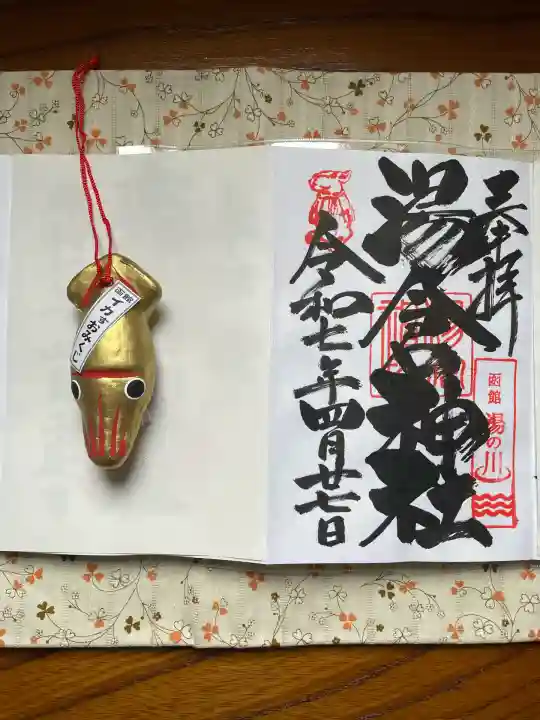 奉拝
湯倉神社
令和七年四月廿七日
函館
湯の川
函館
イカすおみくじ